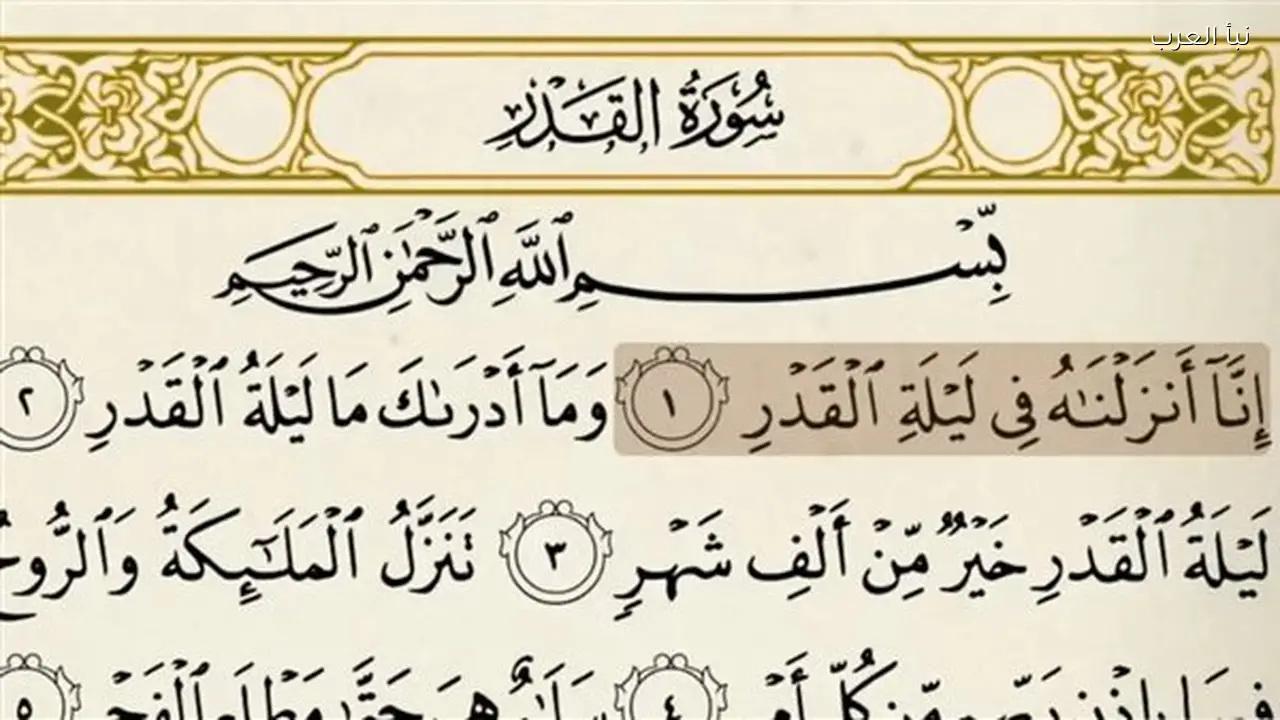 نبأ العرب
سُورَةُ القَدْرِ
بِّسْمِ ٱللَّهِ ٱلرَّحْمَٰنِ ٱلرَّحِيمِ
إِنَّآ أَنزَلْنَٰهُ فِى لَيْلَةِ ٱلْقَدْرِ ١ وَمَآ أَدْرَىٰكَ مَا لَيْلَةُ ٱلْقَدْرِ ٢
لَيْلَةُ ٱلْقَدْرِ خَيْرٌ مِّنْ أَلْفِ شَهْرٍ ٣ تَنَزَّلُ ٱلْمَلَٰٓئِكَةُ وَٱلرُّوحُ
فِيهَا بِإِذْنِ رَبِّهِم مِّن كُلِّ أَمْرٍ ٤ سَلَٰمٌ هِىَ حَتَّىٰ مَطْلَعِ ٱلْفَجْرِ ٥